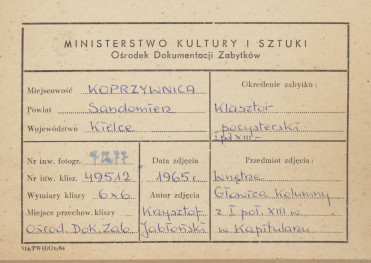 MINISTERSTWO KULTURY I SZTUKI
Ośrodek Dokumentacji Zabytków
Miejscowość KOPRZYWNICA
Powiat Sandomierz
Województwo Kielce
Określenie zabytku:
Klasztor
pocysterski
Nr inw. fotogr.
Nr inw. klisz. 49512
Wymiary kliszy 6x6
Miejsce przechow. kliszy
Ośrod. Dok. Zab
Data zdjęcia
1965 r.
Autor zdjęcia
Krzysztof
Jabłoński
Przedmiot zdjęcia:
Wnętrze
Głowica Kolumny
z I poł. XIII w.
w Kapitularzu